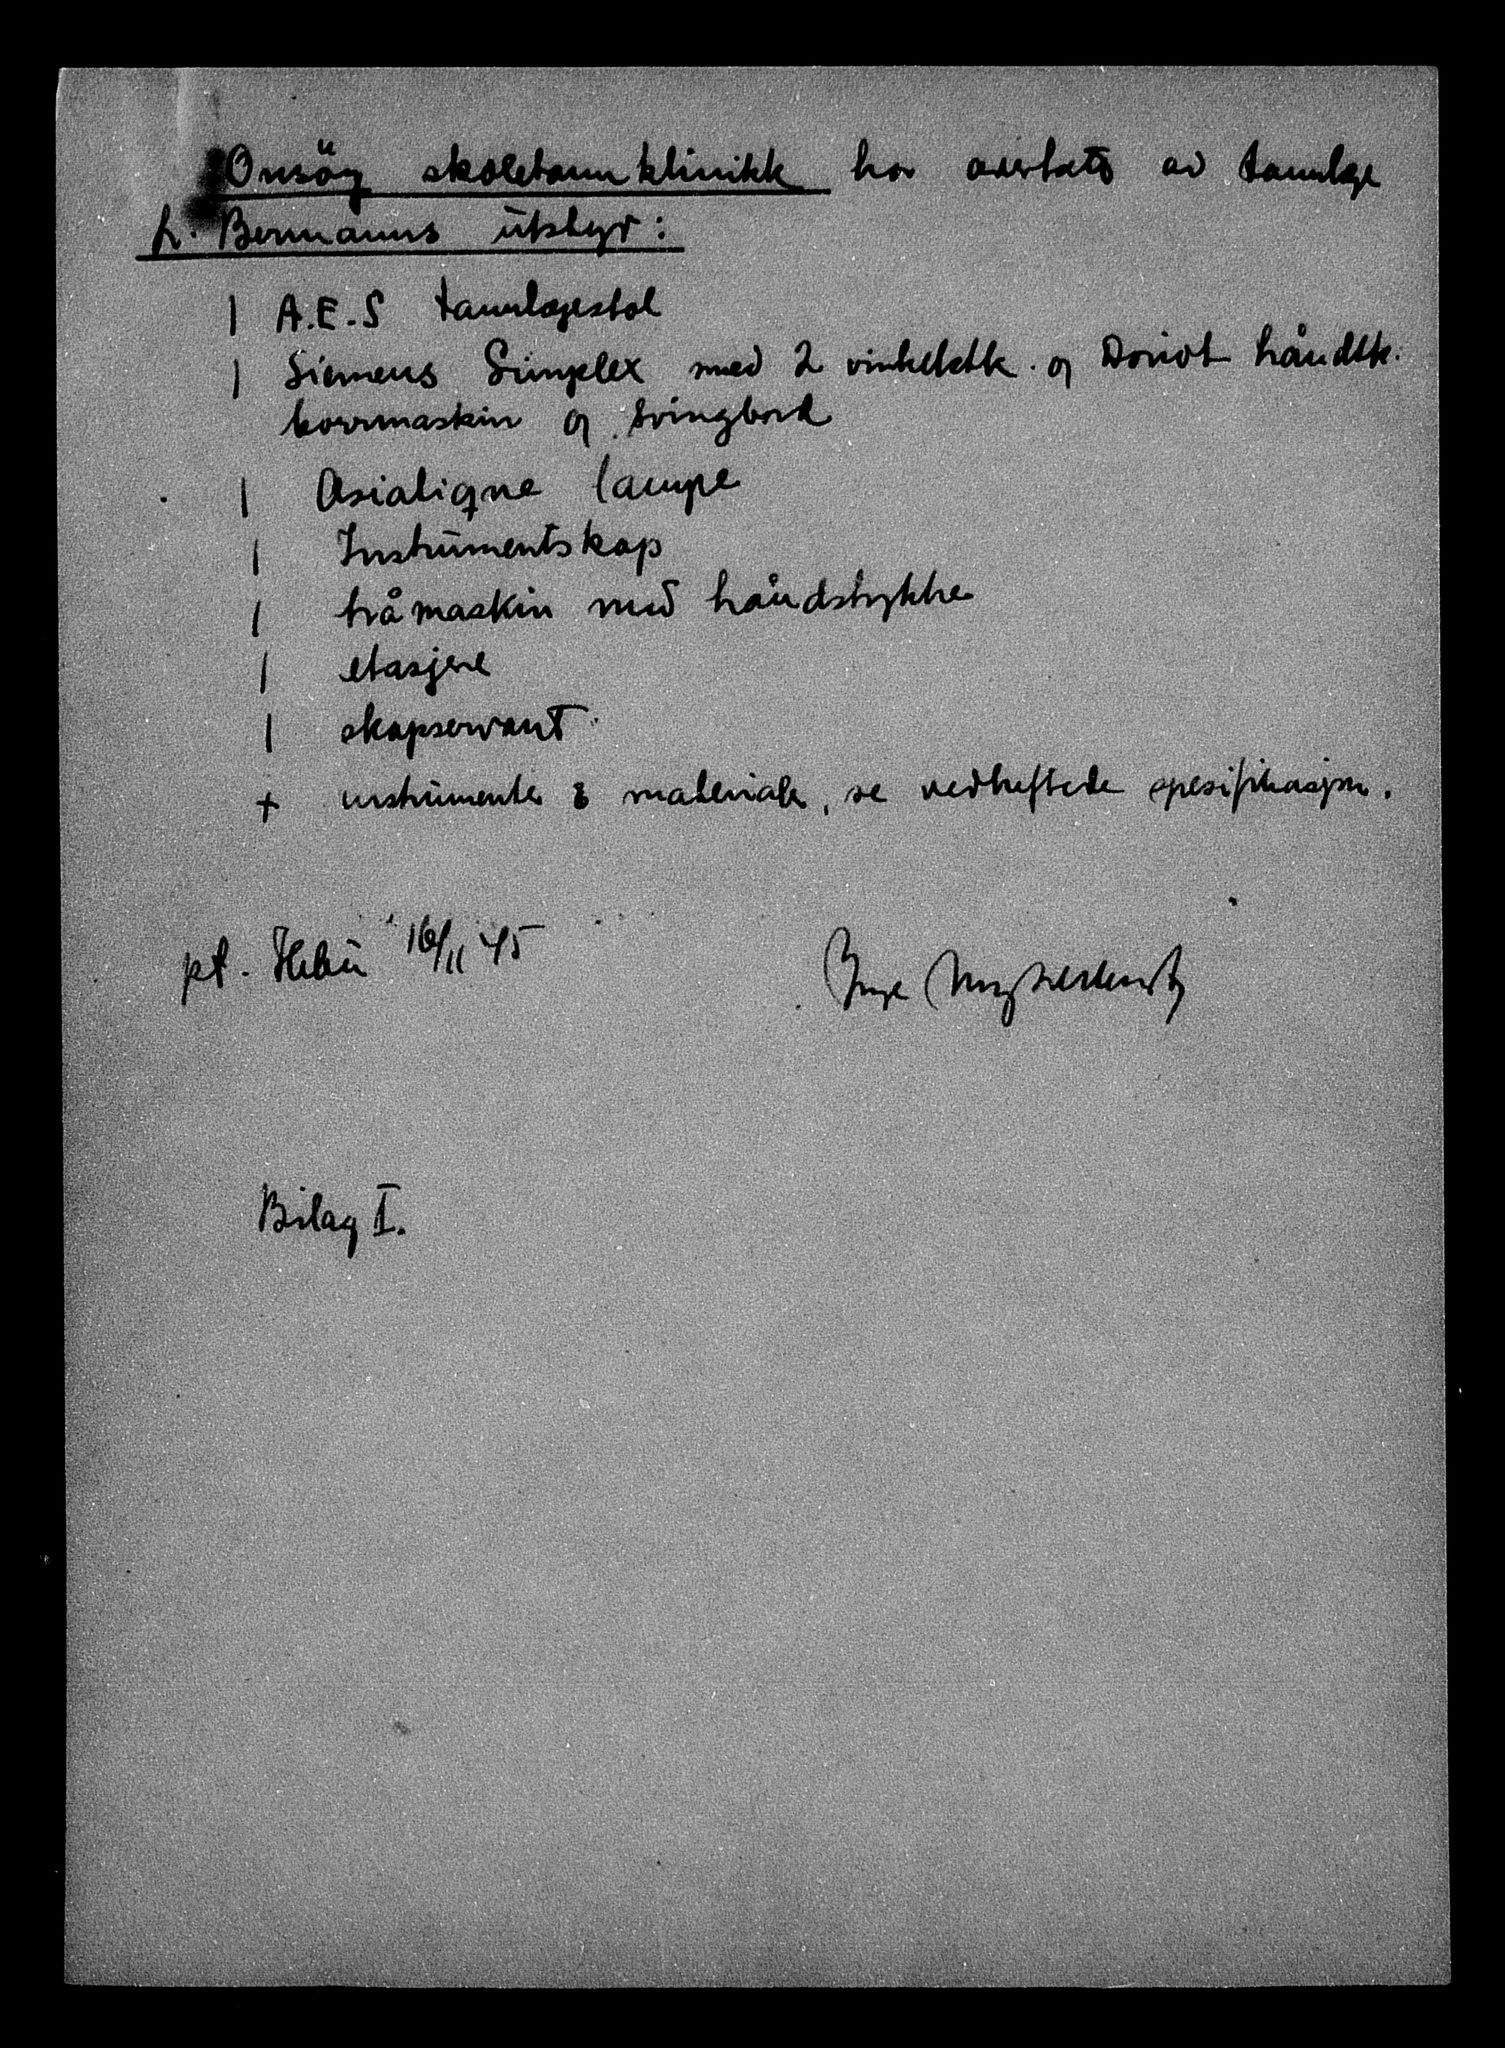 Onsöy skoletannklinikk har overtatt av tannlege
L. Bermanns utstyr:
1 A.E.S tannlegestol
1 Siemens Simplex med 2 vinkelstk. og håndstk.
borrmaskin og svingbord
1 Asialigne lampe
1 Instrumentskap
1 tråmaskin med håndstykke
1 etasjere
1 skapservant
+ instrumenter & materialer, se vedheftede spesifikasjon.
pt. 16/11 45
Bilag I.